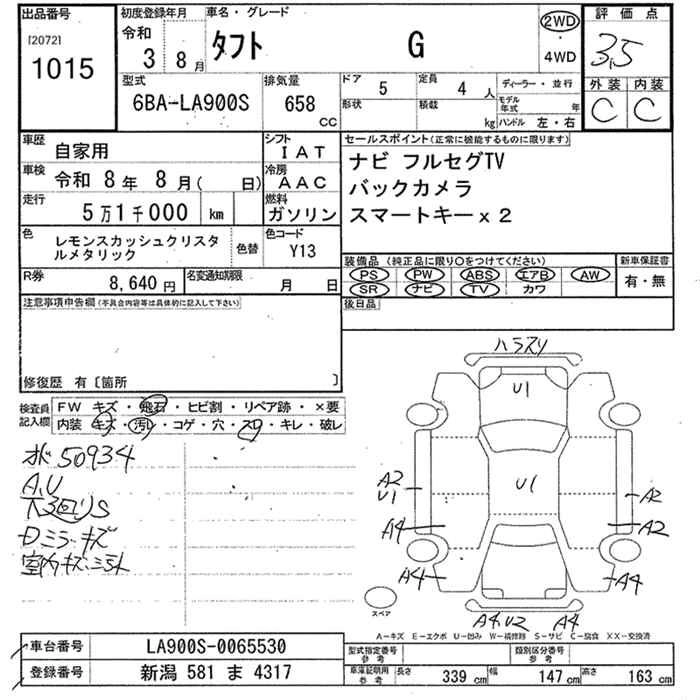 出品番号
[2072]
1015
初度登録年月
令和
3 8 月
車名・グレード
タフト G
2WD
・
4WD
評価点
3.5
外装 内装
C C
型式
6BA-LA900S
排気量
658
CC
ドア 5
形状
定員 4 人
積載 kg
ディーラー・並行
モデル年式 年
ハンドル 左・右
車歴 自家用
シフト IAT
車検 令和 8年 8月( 日)
冷房 AAC
走行 5万1千000 km
燃料 ガソリン
色 レモンスカッシュクリスタ
ルメタリック
色替
色コード Y13
R券 8,640 円
名変通知期限 月 日
セールスポイント(正常に機能するものに限ります)
ナビ フルセグTV
バックカメラ
スマートキーx2
装備品(純正品に限り○をつけてください)
PS PW ABS エアB AW
SR ナビ TV カワ
新車保証書
有・無
後日品
注意事項申告欄(不具合内容等は具体的に記入して下さい)
修復歴 有〔箇所 〕
検査員記入欄
FW キズ・飛石・ヒビ割・リペア跡・×要
内装 キズ・汚レ・コゲ・穴・スレ・キレ・破レ
ボ 50934
A,U
下回りS
Dミラーキズ
ハラスリ
U1
U1
A2
U1
A4
A4
A2
A2
A4
A4,U2 A4
スペア
A-キズ E-エクボ U-凹み W-補修跡 S-サビ C-腐食 XX-交換済
車台番号 LA900S-0065530
登録番号 新潟 581 ま 4317
型式指定番号
参考
類別区分番号
参考
車庫証明用
参考
長さ 339 cm
幅 147 cm
高さ 163 cm